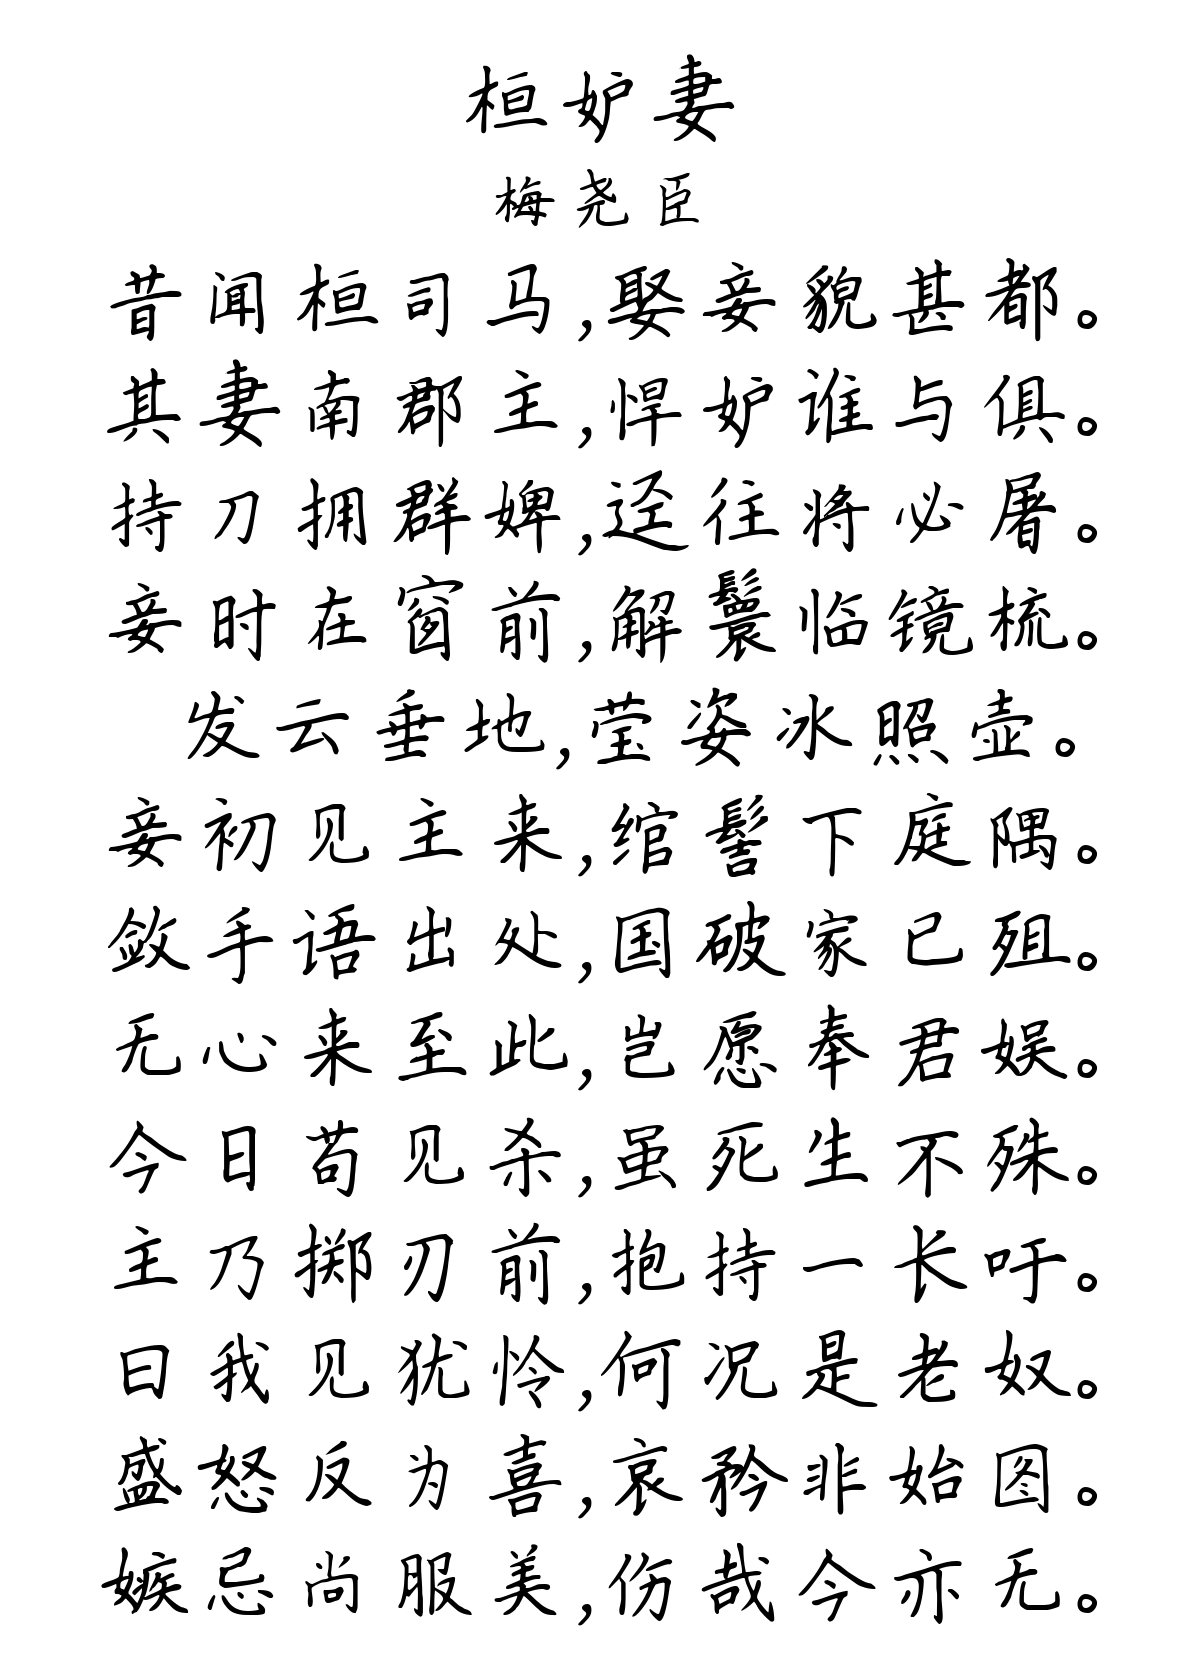 桓妒妻
梅尧臣
昔闻桓司马,娶妾貌甚都。
其妻南郡主,悍妒谁与俱。
持刀拥群婢,迳往将必屠。
妾时在窗前,解鬟临镜梳。
发云垂地,莹姿冰照壶。
妾初见主来,绾髻下庭隅。
敛手语出处,国破家已殂。
无心来至此,岂愿奉君娱。
今日苟见杀,虽死生不殊。
主乃掷刃前,抱持一长吁。
曰我见犹怜,何况是老奴。
盛怒反为喜,哀矜非始图。
嫉忌尚服美,伤哉今亦无。